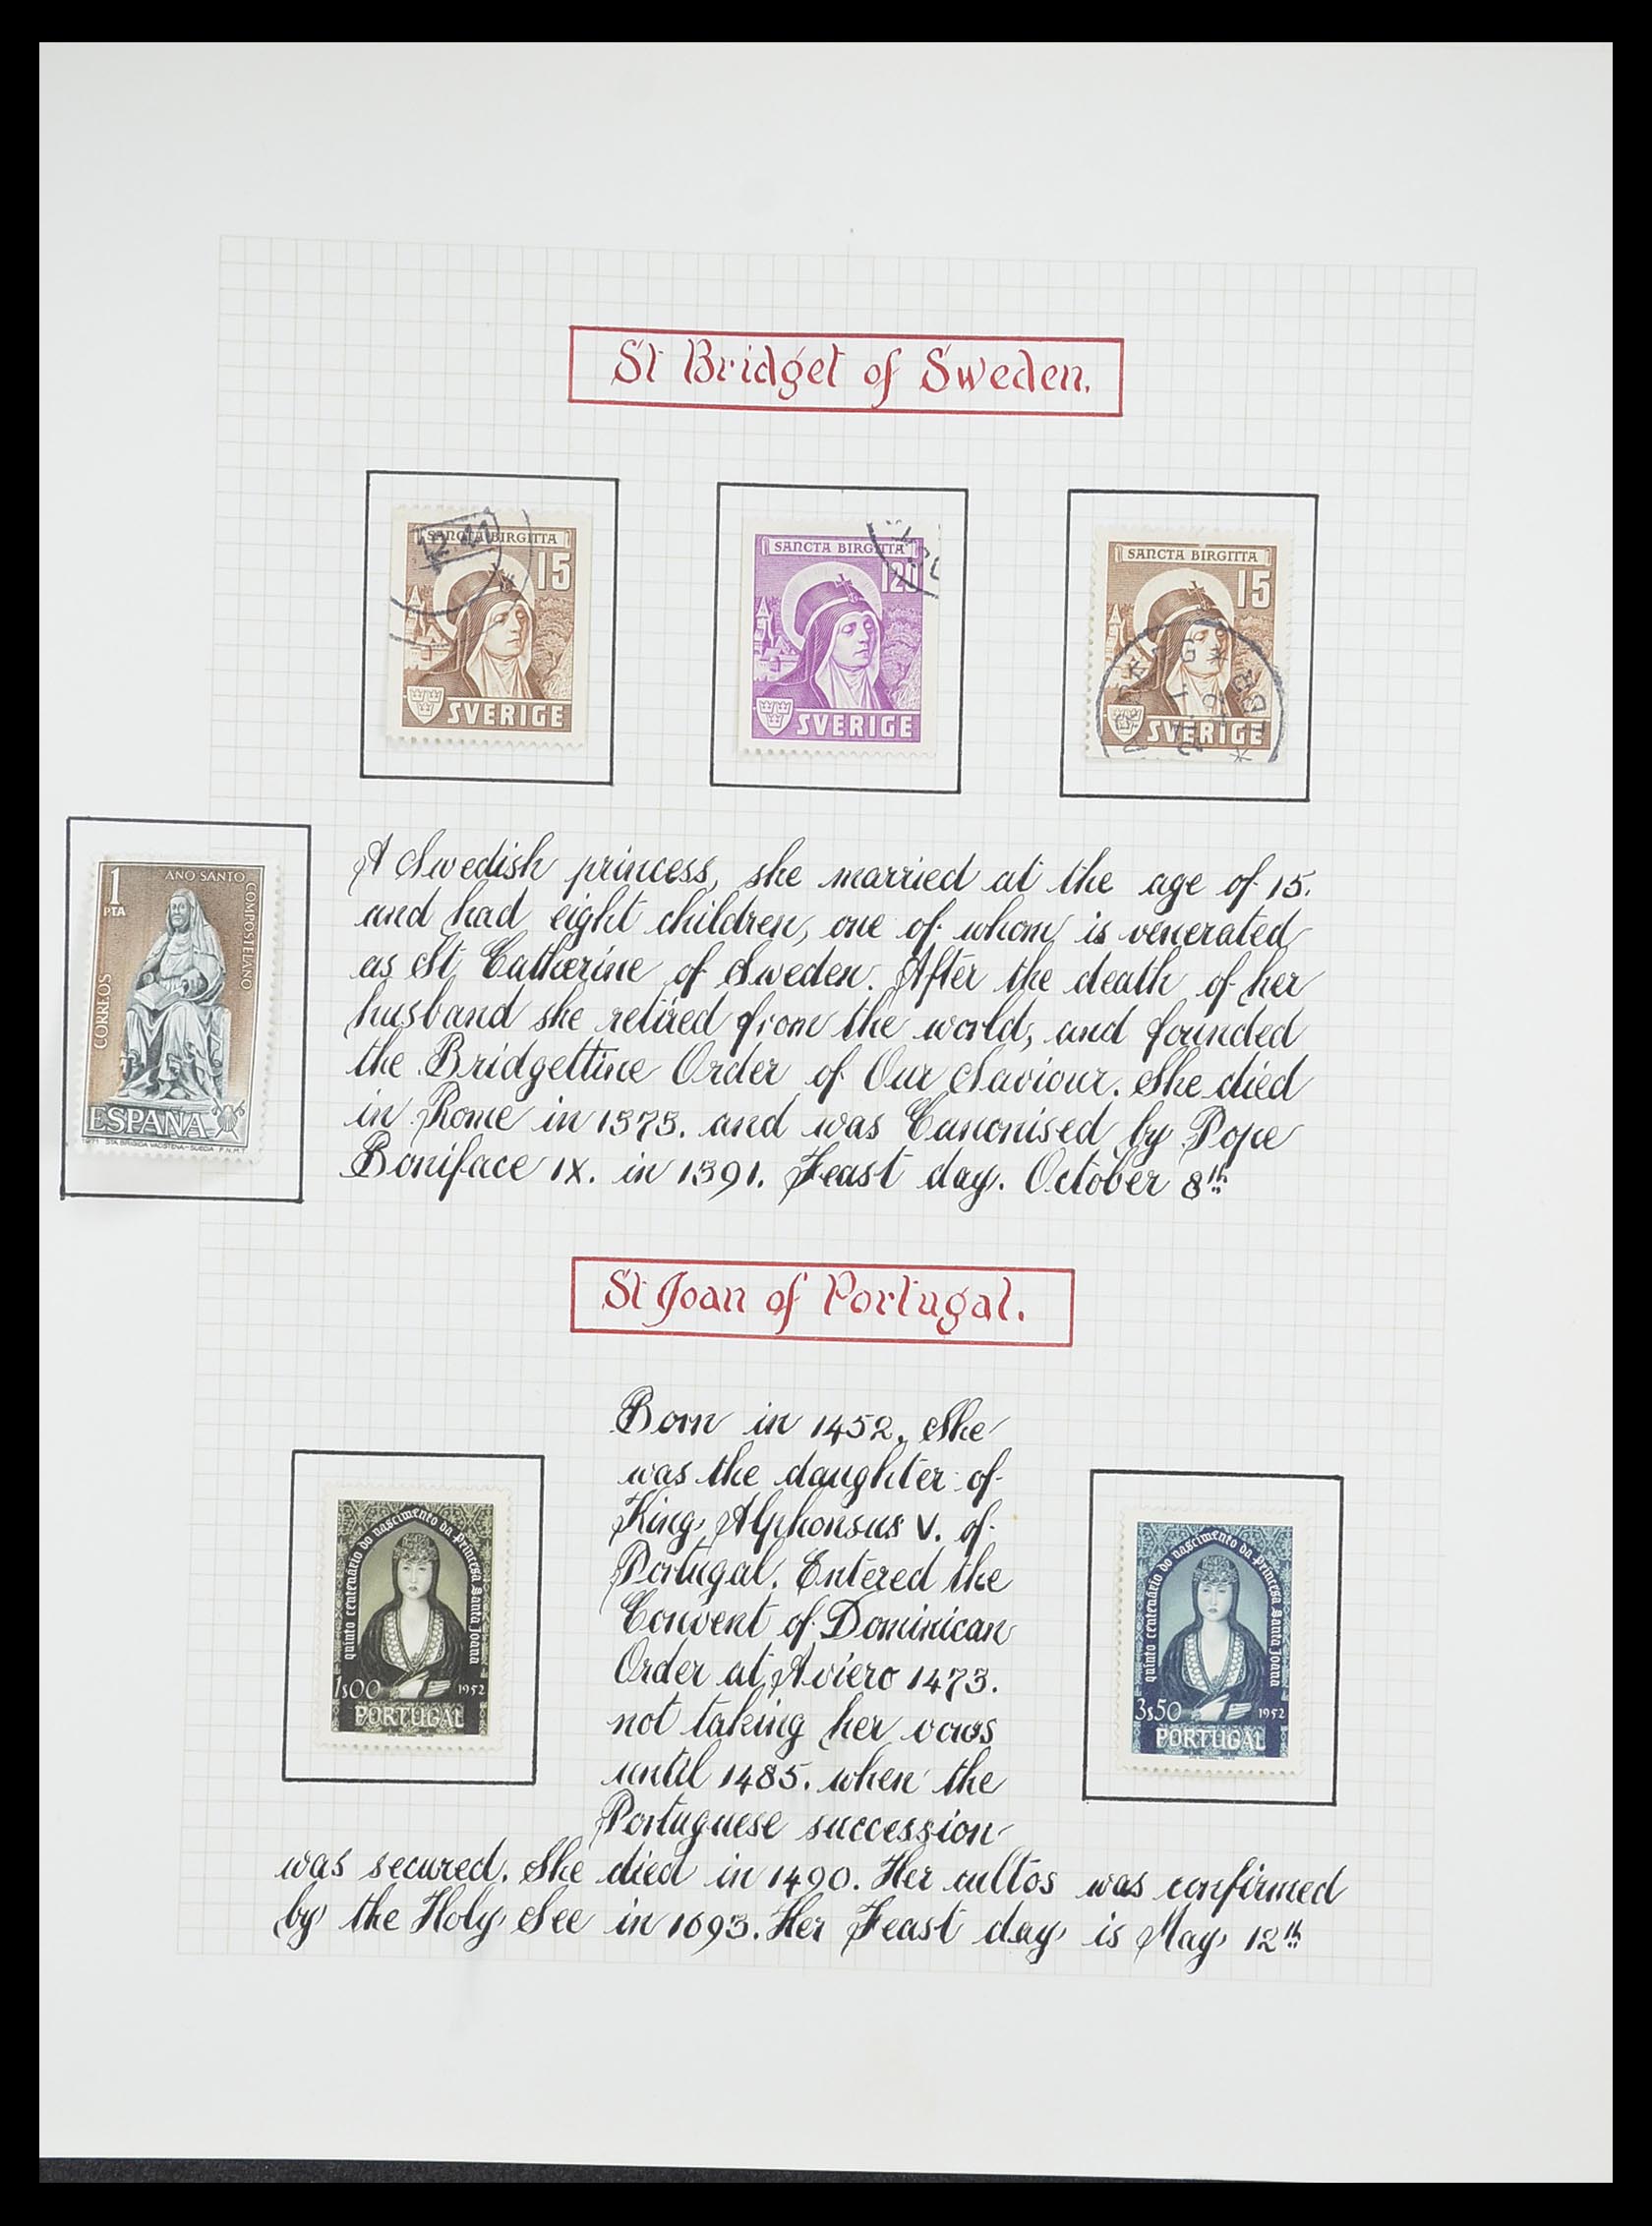 St Bridget of Sweden.
SANCTA BIRGITTA
15
SVERIGE
SANCTA BIRGITTA
120
SVERIGE
SANCTA BIRGITTA
15
SVERIGE
1
PTA
AÑO SANTO COMPOSTELANO
CORREOS
ESPAÑA
1971 STA BRIGIDA VADSTENA-SUECIA F.N.M.T.
A Swedish princess, she married at the age of 15.
and had eight children, one of whom is venerated
as St Catherine of Sweden. After the death of her
husband she retired from the world, and founded
the Bridgettine Order of Our Saviour. She died
in Rome in 1373. and was Canonised by Pope
Boniface IX. in 1391. Feast day. October 8th
St Joan of Portugal.
Born in 1452. She
was the daughter of
King Alphonsus V. of
Portugal. Entered the
Convent of Dominican
Order at Aviero 1473.
not taking her vows
until 1485. when the
Portuguese succession
was secured. She died in 1490. Her cultos was confirmed
by the Holy See in 1693. Her Feast day is May 12th
quinto centenário do nascimento da Princesa Santa Joana
1$00
1952
PORTUGAL
quinto centenário do nascimento da Princesa Santa Joana
3$50
1952
PORTUGAL